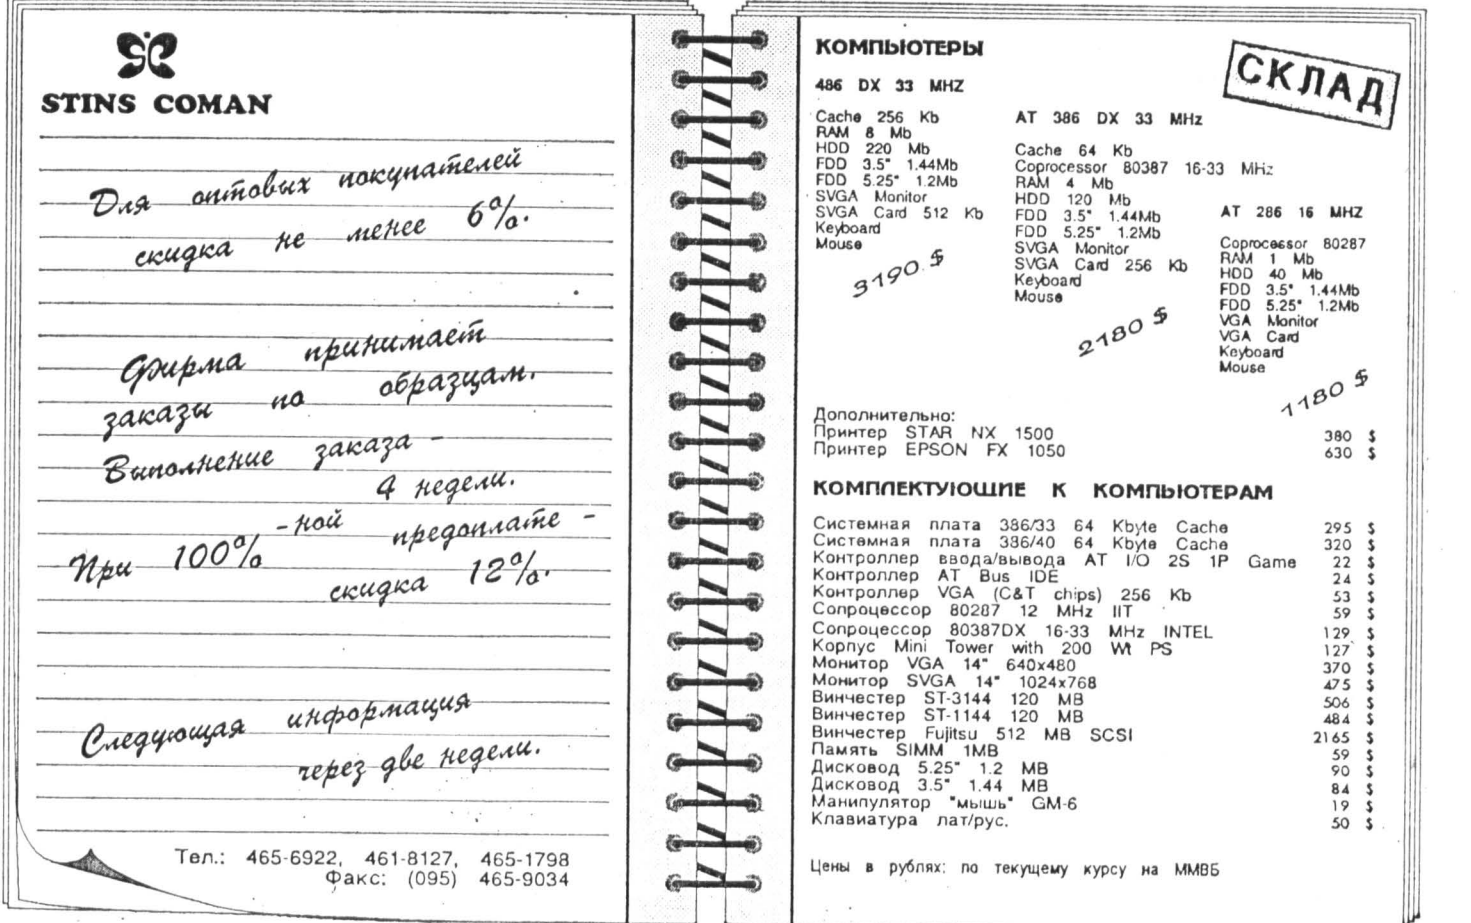 STINS COMAN
Для оптовых покупателей
скидка не менее 6%.
Фирма принимает
заказы по образцам.
Выполнение заказа -
4 недели.
При 100% -ной предоплате -
скидка 12%.
Следующая информация
через две недели.
Тел.: 465-6922, 461-8127, 465-1798
Факс: (095) 465-9034
КОМПЬЮТЕРЫ
СКЛАД
486 DX 33 MHZ
Cache 256 Kb
RAM 8 Mb
HDD 220 Mb
FDD 3.5" 1.44Mb
FDD 5.25" 1.2Mb
SVGA Monitor
SVGA Card 512 Kb
Keyboard
Mouse
3190 $
AT 386 DX 33 MHz
Cache 64 Kb
Coprocessor 80387 16-33 MHz
RAM 4 Mb
HDD 120 Mb
FDD 3.5" 1.44Mb
FDD 5.25" 1.2Mb
SVGA Monitor
SVGA Card 256 Kb
Keyboard
Mouse
2180 $
AT 286 16 MHZ
Coprocessor 80287
RAM 1 Mb
HDD 40 Mb
FDD 3.5" 1.44Mb
FDD 5.25" 1.2Mb
VGA Monitor
VGA Card
Keyboard
Mouse
1180 $
Дополнительно:
Принтер STAR NX 1500 380 $
Принтер EPSON FX 1050 630 $
КОМПЛЕКТУЮЩИЕ К КОМПЬЮТЕРАМ
Системная плата 386/33 64 Kbyte Cache 295 $
Системная плата 386/40 64 Kbyte Cache 320 $
Контроллер ввода/вывода AT I/O 2S 1P Game 22 $
Контроллер AT Bus IDE 24 $
Контроллер VGA (C&T chips) 256 Kb 53 $
Сопроцессор 80287 12 MHz IIT 59 $
Сопроцессор 80387DX 16-33 MHz INTEL 129 $
Корпус Mini Tower with 200 Wt PS 127 $
Монитор VGA 14" 640x480 370 $
Монитор SVGA 14" 1024x768 475 $
Винчестер ST-3144 120 MB 506 $
Винчестер ST-1144 120 MB 484 $
Винчестер Fujitsu 512 MB SCSI 2165 $
Память SIMM 1MB 59 $
Дисковод 5.25" 1.2 MB 90 $
Дисковод 3.5" 1.44 MB 84 $
Манипулятор "мышь" GM-6 19 $
Клавиатура лат/рус. 50 $
Цены в рублях: по текущему курсу на ММВБ